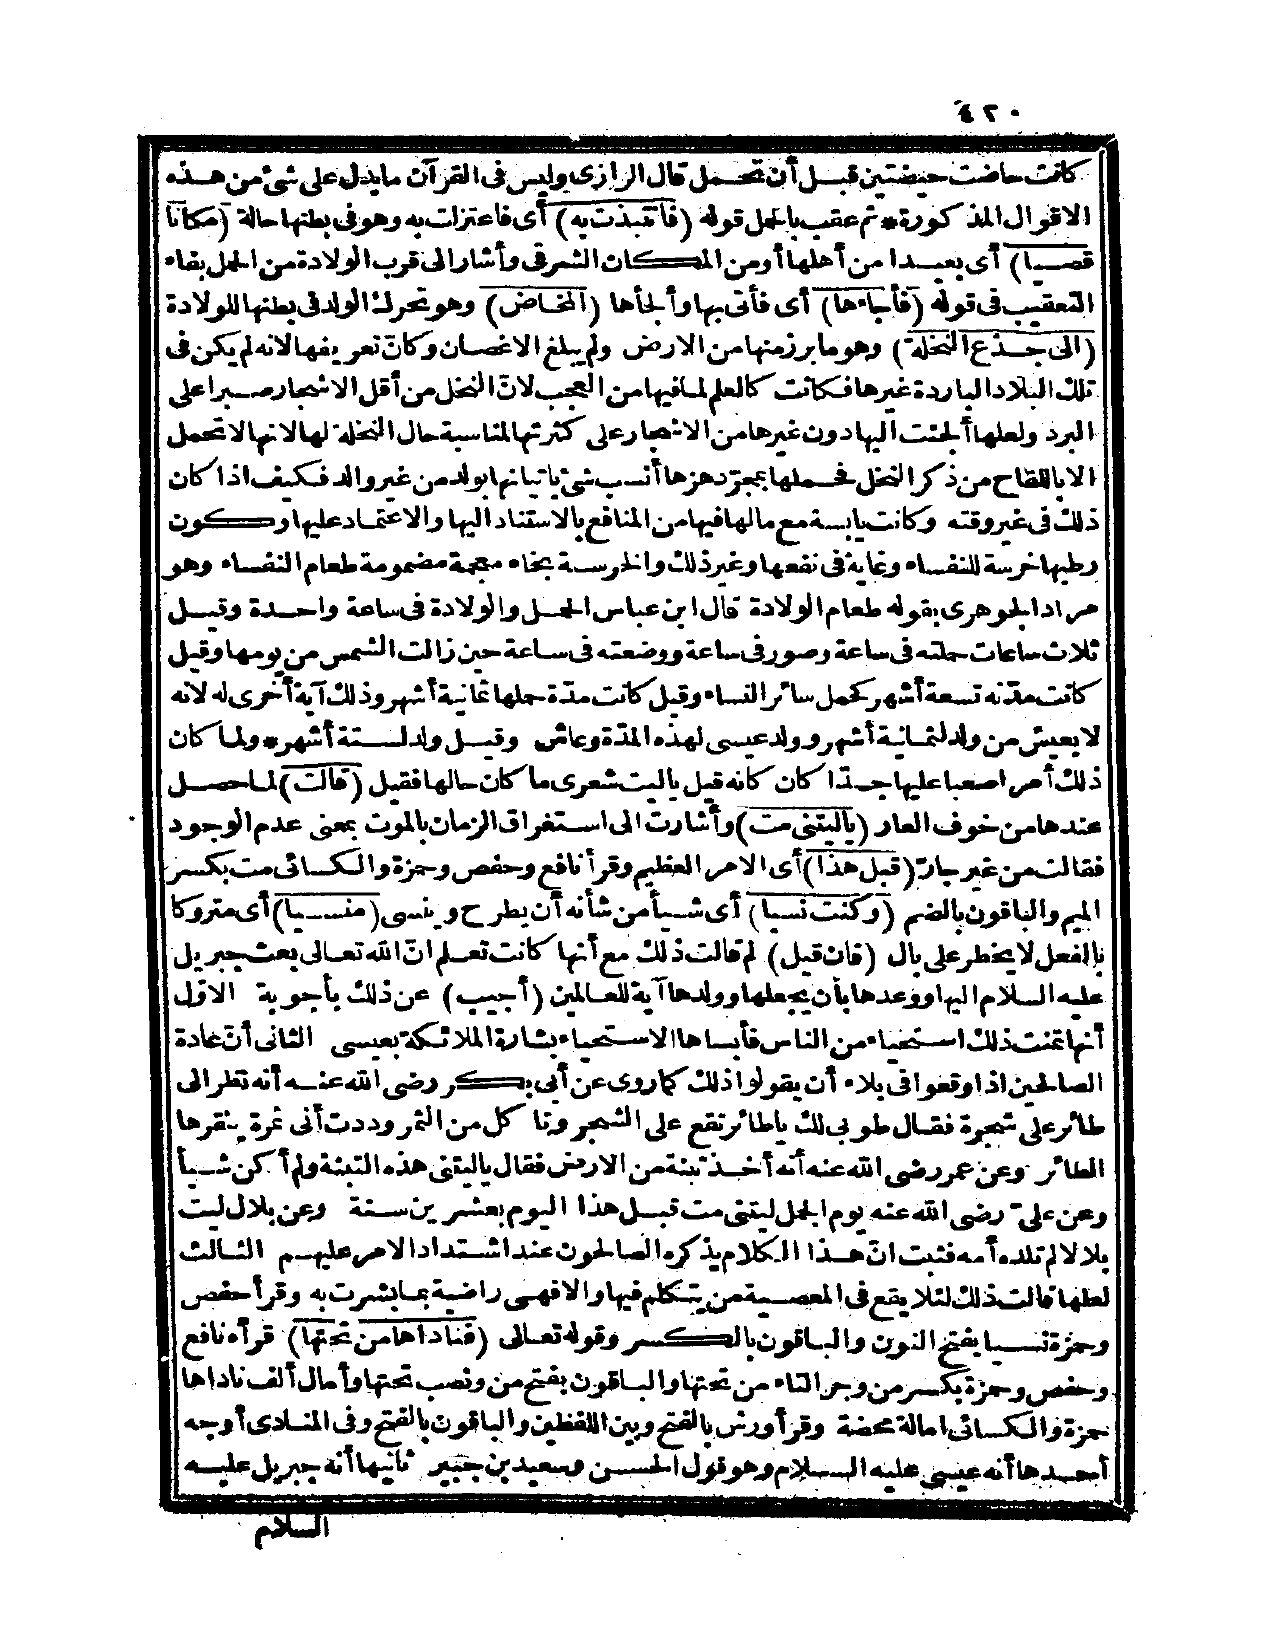 ٤٢٠
كانت حاضت حيضتين قبل أن تحمل قال الرازى وليس فى القرآن ما يدل على شئ من هذه
الاقوال المذكورة * ثم عقب بالحمل قوله (فانتبذت به) أى فاعتزلت به وهو فى بطنها حالة (مكانا
قصيا) أى بعيدا من أهلها أو من المكان الشرقى وأشار الى قرب الولادة من الحمل بفاء
التعقيب فى قوله (فأجاءها) أى فأتى بها وألجأها (المخاض) وهو تحرك الولد فى بطنها للولادة
(الى جذع النخلة) وهو ما برز منها من الارض ولم يبلغ الاغصان وكان تعريفها لانه لم يكن فى
تلك البلاد الباردة غيرها فكانت كالعلم لما فيها من العجب لانّ النخل من أقل الاشجار صبرا على
البرد ولعلها ألجئت اليها دون غيرها من الاشجار على كثرتها لمناسبة حال النخلة لها لانها لا تحمل
الا باللقاح من ذكر النخل فحملها بمجرّد هزها أنسب شئ باتيانها بولد من غير والد فكيف اذا كان
ذلك فى غير وقته وكانت يابسة مع مالها فيها من المنافع بالاستناد اليها والاعتماد عليها وكون
رطبها خرسة للنفساء وغاية فى نفعها وغير ذلك والخرسة بخاء معجمة مضمومة طعام النفساء وهو
مراد الجوهرى بقوله طعام الولادة قال ابن عباس الحمل والولادة فى ساعة واحدة وقيل
ثلاث ساعات حملته فى ساعة وصور فى ساعة ووضعته فى ساعة حين زالت الشمس من يومها وقيل
كانت مدّته تسعة أشهر كحمل سائر النساء وقيل كانت مدّة حملها ثمانية أشهر وذلك آية أخرى له لانه
لا يعيش من ولد لثمانية أشهر وولد عيسى لهذه المدّة وعاش وقيل ولد لستة أشهر * ولما كان
ذلك أمرا صعبا عليها جدّا كان كانه قيل ياليت شعرى ما كان حالها فقيل (قالت) لما حصل
عندها من خوف العار (ياليتنى مت) وأشارت الى استغراق الزمان بالموت بمعنى عدم الوجود
فقالت من غير جارّ (قبل هذا) أى الامر العظيم وقرأ نافع وحفص وحمزة والكسائى مت بكسر
الميم والباقون بالضم (وكنت نسيا) أى شيأ من شأنه أن يطرح وينسى (منسيا) أى متروكا
بالفعل لا يخطر على بال (فان قيل) لم قالت ذلك مع أنها كانت تعلم انّ الله تعالى بعث جبريل
عليه السلام اليها ووعدها بأن يجعلها وولدها آية للعالمين (أجيب) عن ذلك بأجوبة الاوّل
أنها تمنت ذلك استحياء من الناس فأنساها الاستحياء بشارة الملائكة بعيسى الثانى أنّ عادة
الصالحين اذا وقعوا فى بلاء أن يقولوا ذلك كما روى عن أبى بكر رضى الله عنه أنه نظر الى
طائر على شجرة فقال طوبى لك يا طائر تقع على الشجر وتأكل من الثمر وددت أنى ثمرة ينقرها
الطائر وعن عمر رضى الله عنه أنه أخذ تبنة من الارض فقال ياليتنى هذه التبنة ولم أكن شيأ
وعن علىّ رضى الله عنه يوم الجمل ليتنى مت قبل هذا اليوم بعشرين سنة وعن بلال ليت
بلالا لم تلده أمه فثبت انّ هذا الكلام يذكره الصالحون عند اشتداد الامر عليهم الثالث
لعلها قالت ذلك لئلا يقع فى المعصية من يتكلم فيها والا فهى راضية بما بشرت به وقرأ حفص
وحمزة نسيا بفتح النون والباقون بالكسر وقوله تعالى (فناداها من تحتها) قرأه نافع
وحفص وحمزة بكسر من وجر التاء من تحتها والباقون بفتح من ونصب تحتها وأمال ألف ناداها
حمزة والكسائى امالة محضة وقرأ ورش بالفتح وبين اللفظين والباقون بالفتح وفى المنادى أوجه
أحدها أنه عيسى عليه السلام وهو قول الحسن وسعيد بن جبير ثانيها أنه جبريل عليه
السلام